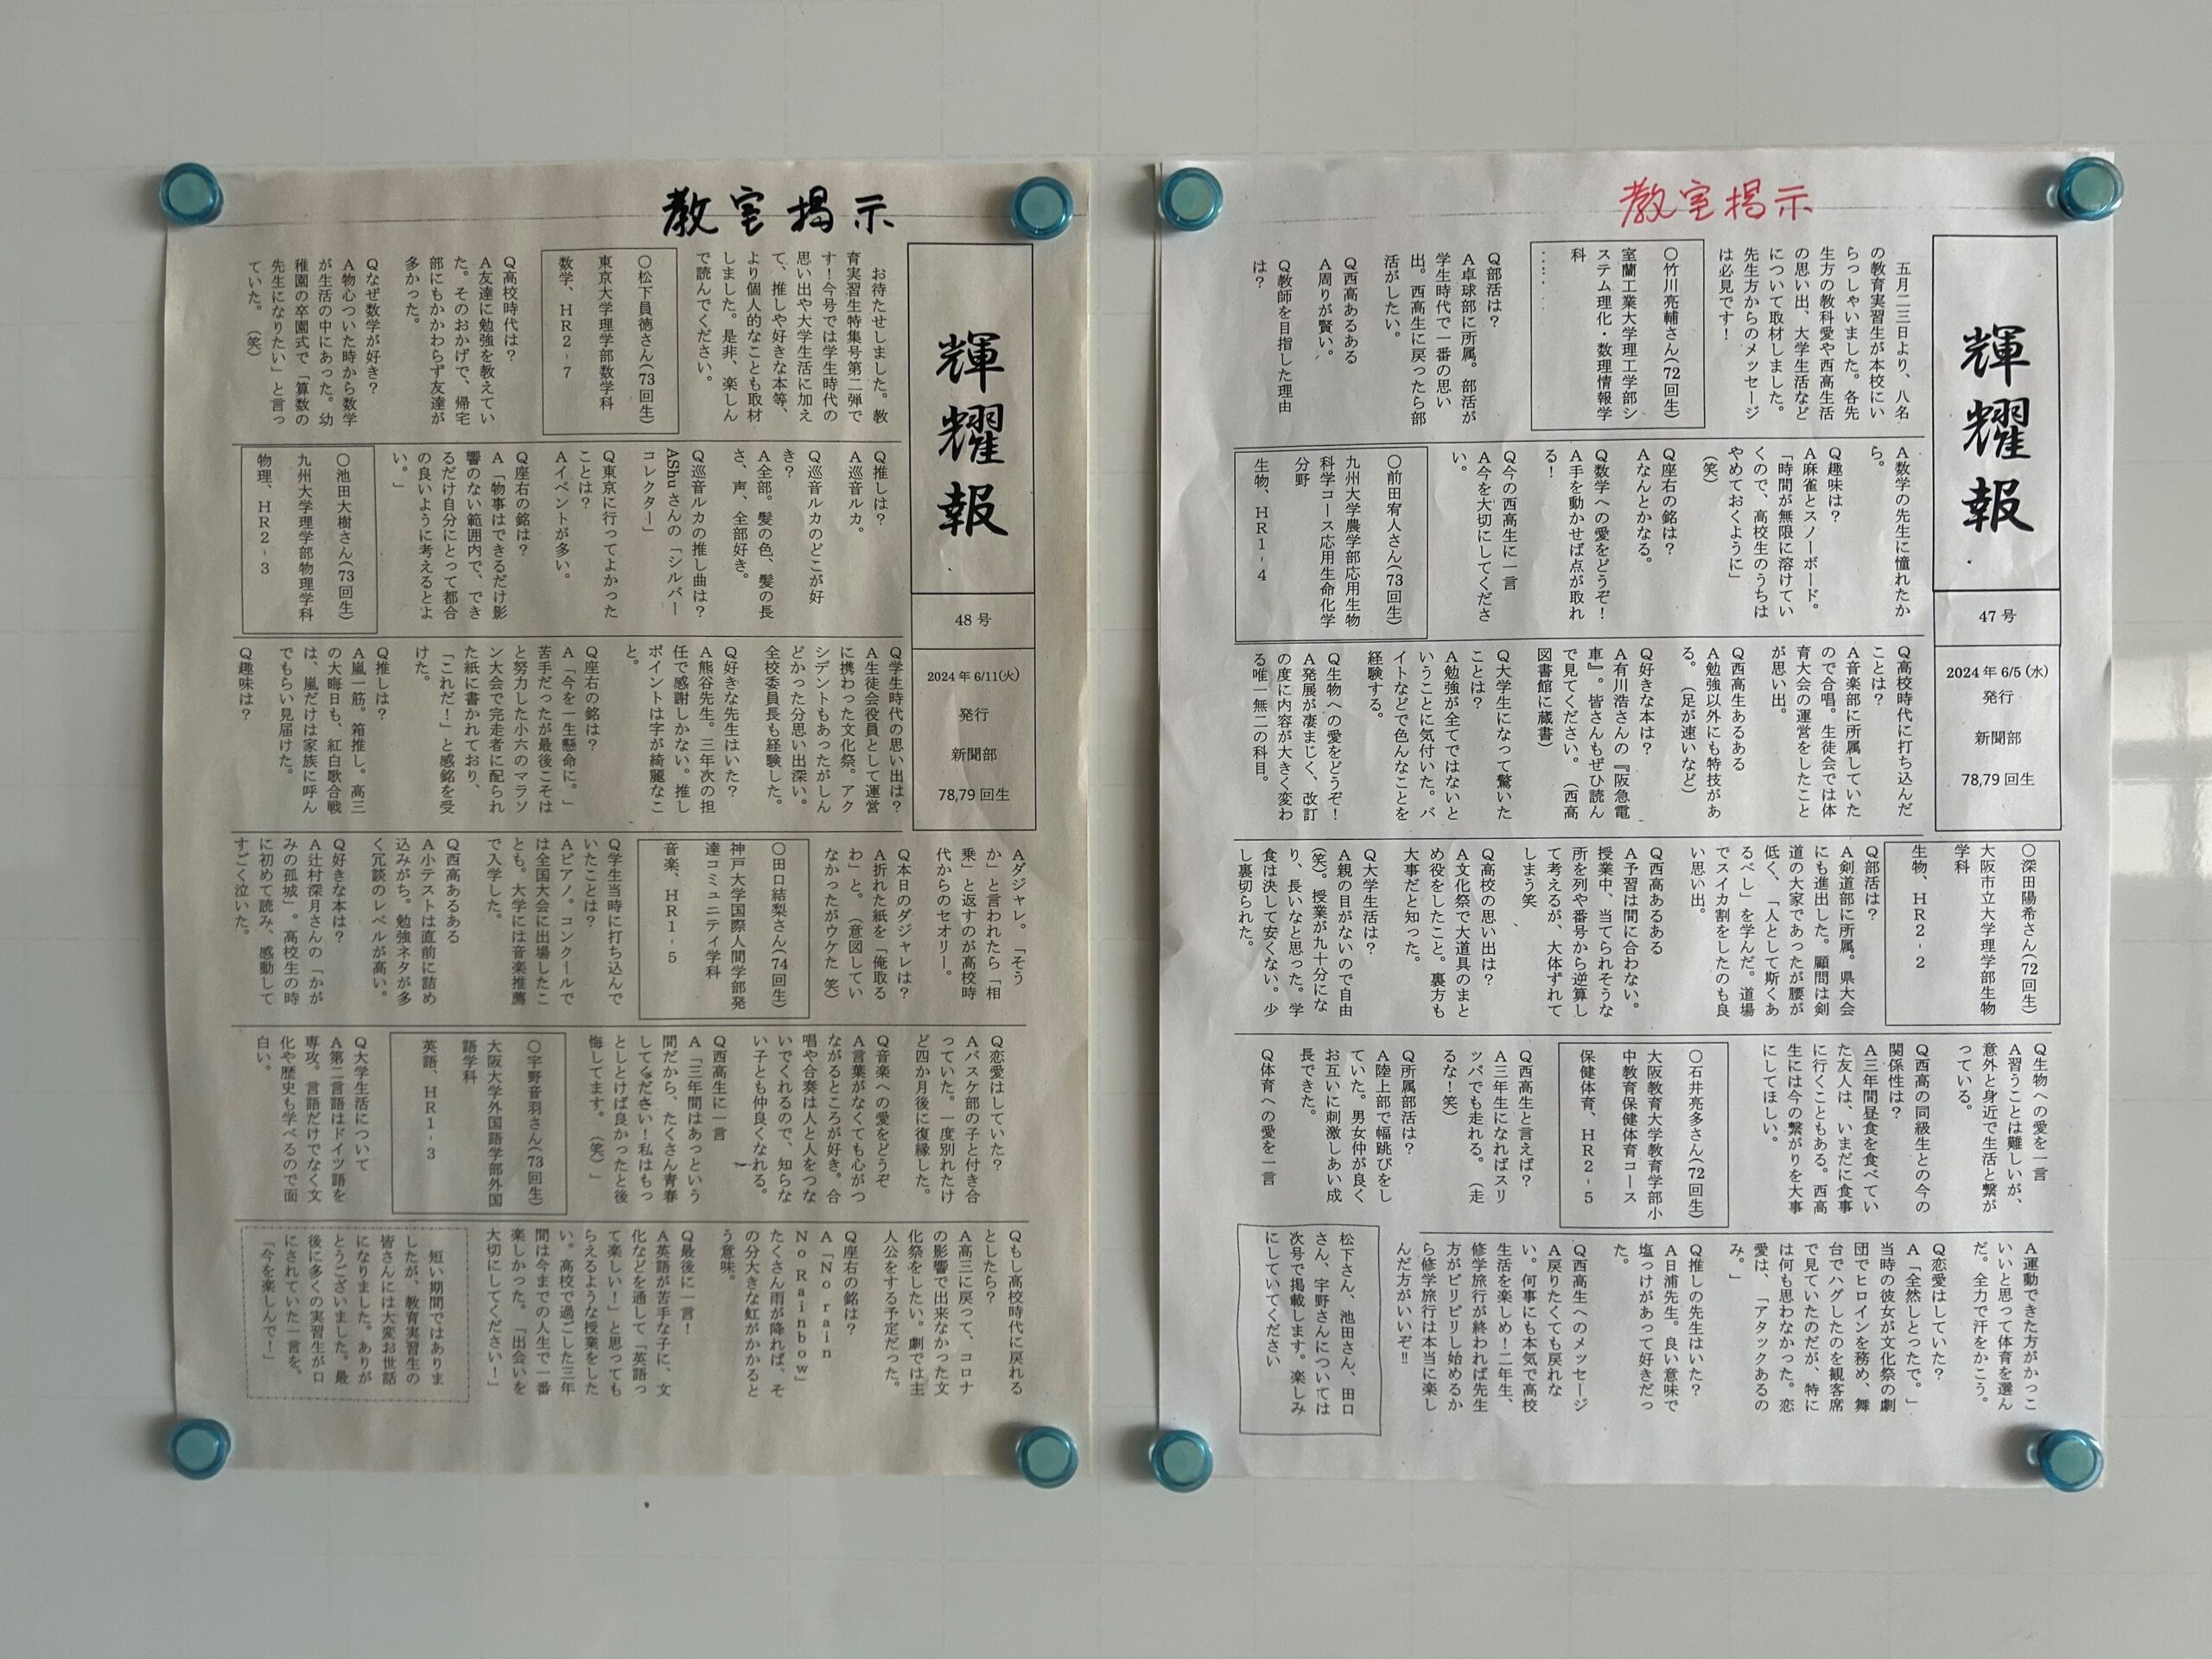 教室掲示
輝耀報
47 号
2024 年 6/5 (水)
発行
新聞部
78,79 回生
五月二三日より、八名
の教育実習生が本校にい
らっしゃいました。各先
生方の教科愛や西高生活
の思い出、大学生活など
について取材しました。
先生方からのメッセージ
は必見です！
〇竹川亮輔さん(72回生)
室蘭工業大学理工学部シ
ステム理化・数理情報学
科
Q部活は？
A卓球部に所属。部活が
学生時代で一番の思い
出。西高生に戻ったら部
活がしたい。
Q西高あるある
A周りが賢い。
Q教師を目指した理由
は？
A数学の先生に憧れたか
ら。
Q趣味は？
A麻雀とスノーボード。
「時間が無限に溶けてい
くので、高校生のうちは
やめておくように」
（笑）
Q座右の銘は？
Aなんとかなる。
Q数学への愛をどうぞ！
A手を動かせば点が取れ
る！
Q今の西高生に一言
A今を大切にしてくださ
い。
〇前田宥人さん(73回生)
九州大学農学部応用生物
科学コース応用生命化学
分野
生物、HR1-4
Q高校時代に打ち込んだ
ことは？
A音楽部に所属していた
ので合唱。生徒会では体
育大会の運営をしたこと
が思い出。
Q西高生あるある
A勉強以外にも特技があ
る。（足が速いなど）
Q好きな本は？
A有川浩さんの『阪急電
車』。皆さんもぜひ読ん
で見てください。（西高
図書館に蔵書）
Q大学生になって驚いた
ことは？
A勉強が全てではないと
いうことに気付いた。バ
イトなどで色んなことを
経験する。
Q生物への愛をどうぞ！
A発展が凄まじく、改訂
の度に内容が大きく変わ
る唯一無二の科目。
〇深田陽希さん(72回生)
大阪市立大学理学部生物
学科
生物、HR2-2
Q部活は？
A剣道部に所属。県大会
にも進出した。顧問は剣
道の大家であったが腰が
低く、「人として斯くあ
るべし」を学んだ。道場
でスイカ割をしたのも良
い思い出。
Q西高あるある
A予習は間に合わない。
授業中、当てられそうな
所を列や番号から逆算し
て考えるが、大体ずれて
しまう笑
Q高校の思い出は？
A文化祭で大道具のまと
め役をしたこと。裏方も
大事だと知った。
Q大学生活は？
A親の目がないので自由
（笑）。授業が九十分にな
り、長いなと思った。学
食は決して安くない。少
し裏切られた。
Q生物への愛を一言
A習うことは難しいが、
意外と身近で生活と繋が
っている。
Q西高の同級生との今の
関係性は？
A三年間昼食を食べてい
た友人は、いまだに食事
に行くこともある。西高
生には今の繋がりを大事
にしてほしい。
〇石井亮多さん(72回生)
大阪教育大学教育学部小
中教育保健体育コース
保健体育、HR2-5
Q西高生と言えば？
A三年生になればスリ
ッパでも走れる。（走
るな！笑）
Q所属部活は？
A陸上部で幅跳びをし
ていた。男女仲が良く
お互いに刺激しあい成
長できた。
Q体育への愛を一言
A運動できた方がかっこ
いいと思って体育を選ん
だ。全力で汗をかこう。
Q恋愛はしていた？
A「全然しとったで。」
当時の彼女が文化祭の劇
団でヒロインを務め、舞
台でハグしたのを観客席
で見ていたのだが、特に
は何も思わなかった。恋
愛は、「アタックあるの
み。」
Q推しの先生はいた？
A日浦先生。良い意味で
塩っけがあって好きだっ
た。
Q西高生へのメッセージ
A戻りたくても戻れな
い。何事にも本気で高校
生活を楽しめ！二年生、
修学旅行が終われば先生
方がピリピリし始めるか
ら修学旅行は本当に楽し
んだ方がいいぞ!!
松下さん、池田さん、田口
さん、宇野さんについては
次号で掲載します。楽しみ
にしていてください
教室掲示
輝耀報
48 号
2024 年 6/11(火)
発行
新聞部
78,79 回生
お待たせしました。教
育実習生特集号第二弾で
す！今号では学生時代の
思い出や大学生活に加え
て、推しや好きな本等、
より個人的なことも取材
しました。是非、楽しん
で読んでください。
〇松下員徳さん(73回生)
東京大学理学部数学科
数学、HR2-7
Q高校時代は？
A友達に勉強を教えてい
た。そのおかげで、帰宅
部にもかかわらず友達が
多かった。
Qなぜ数学が好き？
A物心ついた時から数学
が生活の中にあった。幼
稚園の卒園式で「算数の
先生になりたい」と言っ
ていた。（笑）
Q推しは？
A巡音ルカ。
Q巡音ルカのどこが好
き？
A全部。髪の色、髪の長
さ、声、全部好き。
Q巡音ルカの推し曲は？
AShuさんの「シルバー
コレクター」
Q東京に行ってよかった
ことは？
Aイベントが多い。
Q座右の銘は？
A「物事はできるだけ影
響のない範囲内で、でき
るだけ自分にとって都合
の良いように考えるとよ
い。」
〇池田大樹さん(73回生)
九州大学理学部物理学科
物理、HR2-3
Q学生時代の思い出は？
A生徒会役員として運営
に携わった文化祭。アク
シデントもあったがしん
どかった分思い出深い。
全校委員長も経験した。
Q好きな先生はいた？
A熊谷先生。三年次の担
任で感謝しかない。推し
ポイントは字が綺麗なこ
と。
Q座右の銘は？
A「今を一生懸命に。」
苦手だったが最後こそは
と努力した小六のマラソ
ン大会で完走者に配られ
た紙に書かれており、
「これだ！」と感銘を受
けた。
Q推しは？
A嵐一筋。箱推し。高三
の大晦日も、紅白歌合戦
は、嵐だけは家族に呼ん
でもらい見届けた。
Q趣味は？
Aダジャレ。「そう
か」と言われたら「相
乗」と返すのが高校時
代からのセオリー。
Q本日のダジャレは？
A折れた紙を「俺取る
わ」と。（意図してい
なかったがウケた 笑）
〇田口結梨さん(74回生)
神戸大学国際人間学部発
達コミュニティ学科
音楽、HR1-5
Q学生当時に打ち込んで
いたことは？
Aピアノ。コンクールで
は全国大会に出場したこ
とも。大学には音楽推薦
で入学した。
Q西高あるある
A小テストは直前に詰め
込みがち。勉強ネタが多
く冗談のレベルが高い。
Q好きな本は？
A辻村深月さんの「かが
みの孤城」。高校生の時
に初めて読み、感動して
すごく泣いた。
Q恋愛はしていた？
Aバスケ部の子と付き合
っていた。一度別れたけ
ど四か月後に復縁した。
Q音楽への愛をどうぞ
A言葉がなくても心がつ
ながるところが好き。合
唱や合奏は人と人をつな
いでくれるので、知らな
い子とも仲良くなれる。
Q西高生に一言
A「三年間はあっという
間だから、たくさん青春
してください！私はもっ
としとけば良かったと後
悔してます。（笑）」
〇宇野音羽さん(73回生)
大阪大学外国語学部外国
語学科
英語、HR1-3
Q大学生活について
A第二言語はドイツ語を
専攻。言語だけでなく文
化や歴史も学べるので面
白い。
Qもし高校時代に戻れる
としたら？
A高三に戻って、コロナ
の影響で出来なかった文
化祭をしたい。劇では主
人公をする予定だった。
Q座右の銘は？
A「No rain
No Rainbow」
たくさん雨が降れば、そ
の分大きな虹がかかると
う意味。
Q最後に一言！
A英語が苦手な子に、文
化などを通して「英語っ
て楽しい！」と思っても
らえるような授業をした
い。高校で過ごした三年
間は今までの人生で一番
楽しかった。「出会いを
大切にしてください！」
短い期間ではありま
したが、教育実習生の
皆さんには大変お世話
になりました。ありが
とうございました。最
後に多くの実習生がロ
にされていた一言を。
「今を楽しんで！」